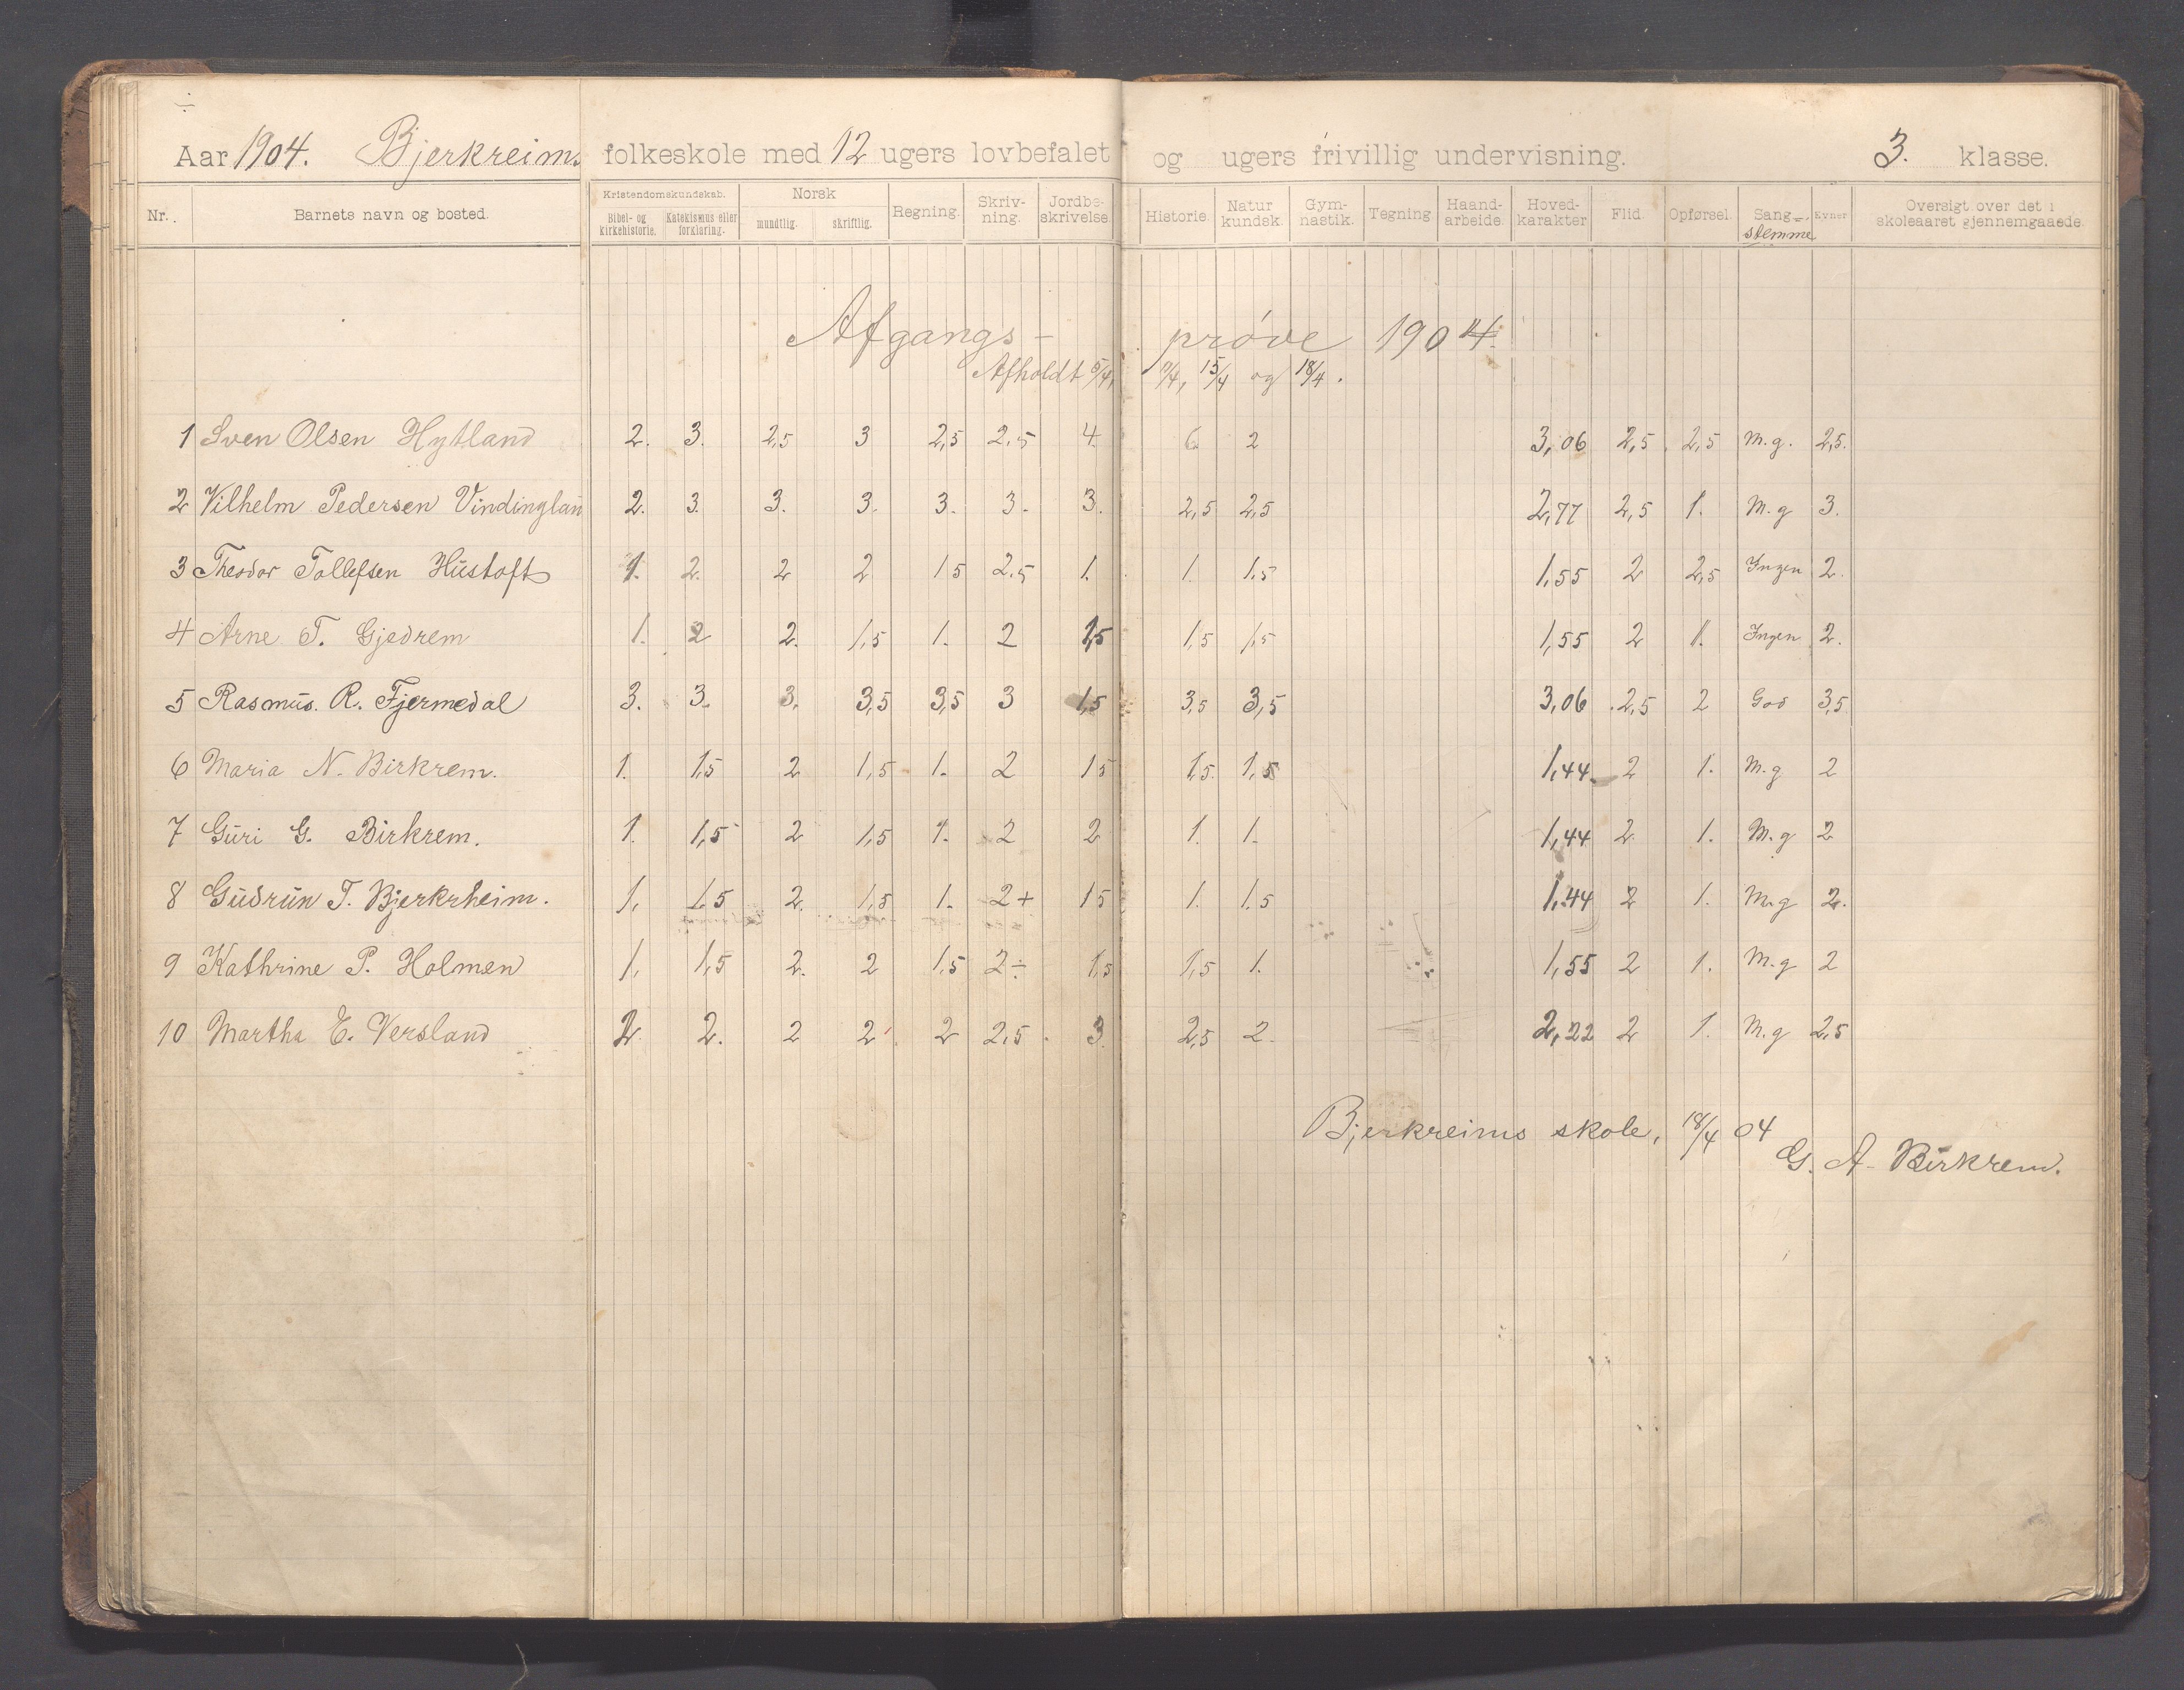 Aar 1904. Bjerkreims folkeskole med 12 ugers lovbefalet og ugers frivillig undervisning. 3. klasse.
Nr. Barnets navn og bosted. Kristendomskundskab. Bibel- og kirkehistorie. Katekismus eller forklaring. Norsk mundtlig. skriftlig. Regning. Skriv-ning. Jordbe-skrivelse. Historie. Natur kundsk. Gym-nastik. Tegning Haand-arbeide. Hoved-karakter Flid. Opførsel. Sang-stemme Evner Oversigt over det i skoleaaret gjennemgaaede.
Afgangs- prøve 1904.
Afholdt 5/4, 9/4, 15/4 og 18/4.
1 Sven Olsen Hytland 2. 3. 2,5 3 2,5 2.5 4. 6 2 3,06 2,5 2,5 M.g. 2,5.
2 Vilhelm Pedersen Vindinglan 2. 3. 3. 3. 3. 3. 3. 2,5 2,5 2,77 2,5 1. M.g 3.
3 Theodor Tollefsen Hustoft 1. 2. 2 2 15 2.5 1. 1. 1.5 1,55 2 2,5 Ingen 2.
4 Arne T. Gjedrem 1. 2 2. 1,5 1. 2 1,5 1,5 1,5 1,55 2 1. Ingen 2.
5 Rasmus. R. Fjermedal 3. 3. 3. 3,5 3,5 3 1,5 3,5 3,5 3,06 2,5 2 God 3,5
6 Maria N. Birkrem. 1. 1,5 2 1,5 1. 2 15 1,5. 1,5 1,44 2 1. M.g 2
7 Guri G. Birkrem. 1. 1,5 2 1,5 1. 2 2 1. 1. 1,44 2. 1. M.g 2
8 Gudrun T. Bjerkrheim. 1. 1.5 2. 1,5 1. 2+ 15 1. 1.5 1.44 2 1. M.g 2.
9 Kathrine P. Holmen 1. 1,5 2. 2 1.5 2÷ 1,5 1,5 1. 1,55 2 1. M.g 2
10 Martha E. Versland 2. 2. 2 2 2 2,5 3. 2,5 2. 2,22 2 1. M.g 2,5
Bjerkreims skole, 18/4 04
G. A. Birkrem.